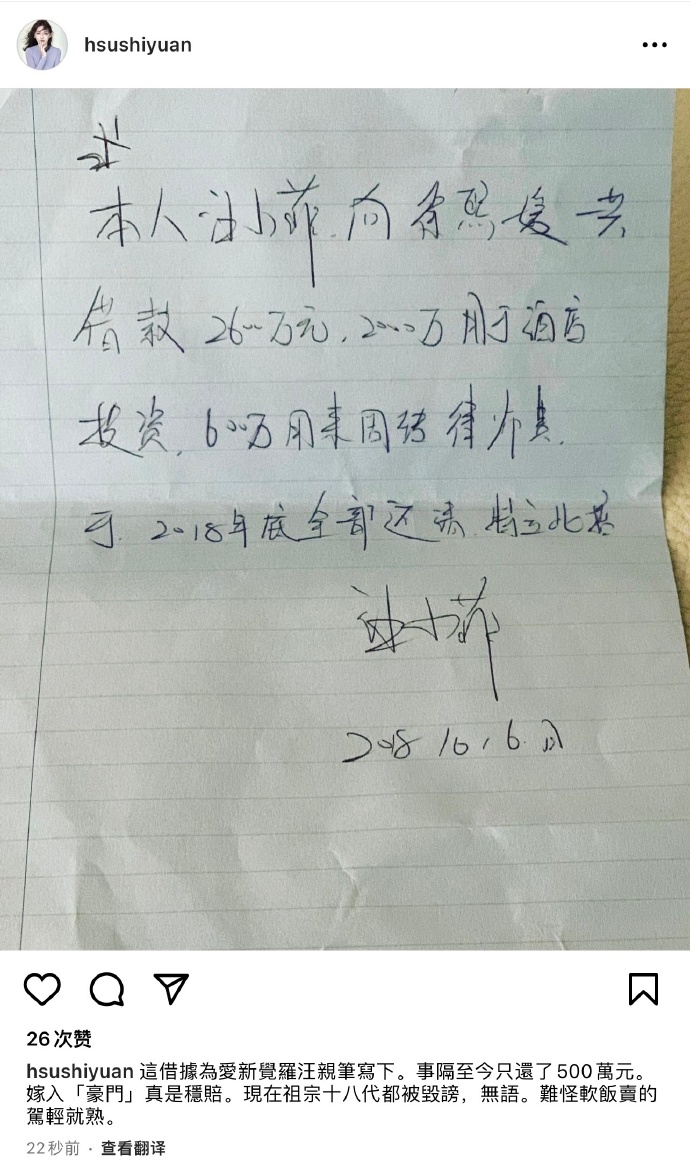 hsushiyuan
本人汪小菲.向徐熙媛共
借款2600万元,2000万用于酒店
投资,600万用来周转律师费.
于.2018年底全部还清.特立此
汪小菲
2018 10,6.
26次赞
hsushiyuan 這借據為愛新覺羅汪親筆寫下。事隔至今只還了500萬元。
嫁入「豪門」真是穩賠。現在祖宗十八代都被毀謗，無語。難怪軟飯賣的
駕輕就熟。
22秒前 · 查看翻译